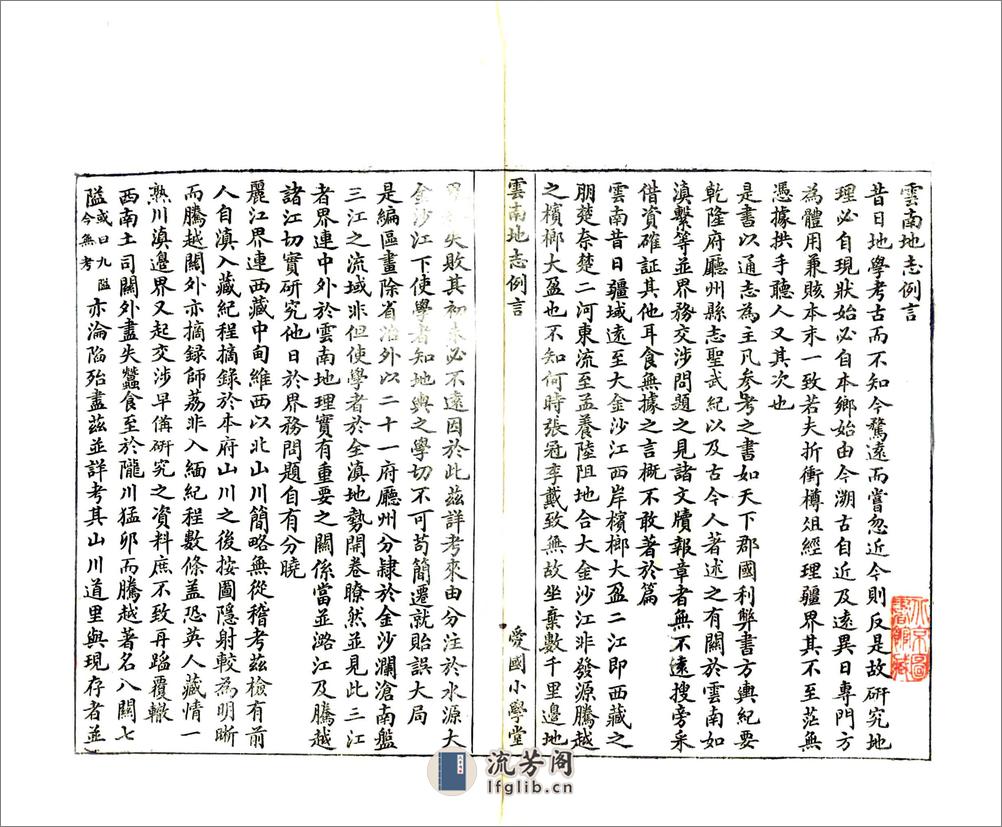 雲南地志例言
昔日地學考古而不知今騖遠而嘗忽近今則反是故研究地
理必自現狀始必自本鄉始由今溯古自近及遠異日專門方
為體用兼賅本末一致若夫折衝樽俎經理疆界其不至茫無
憑據拱手聽人又其次也
是書以通志為主凡參考之書如天下郡國利弊書方輿紀要
乾隆府廳州縣志聖武紀以及古今人著述之有關於雲南如
滇繫等並界務交涉問題之見諸文牘報章者無不遠搜旁采
借資確証其他耳食無據之言概不敢著於篇
雲南昔日疆域遠至大金沙江西岸檳榔大盈二江即西藏之
朋楚奈楚二河東流至孟養陸阻地合大金沙江非發源騰越
之檳榔大盈也不知何時張冠李戴致無故坐棄數千里邊地
雲南地志例言
愛國小學堂
失敗其初未必不遠因於此茲詳考來由分注於水源大
金沙江下使學者知地輿之學切不可苟簡遷就貽誤大局
是編區畫除省治外以二十一府廳州分隸於金沙瀾滄南盤
三江之流域非但使學者於全滇地勢開卷瞭然並見此三江
者界連中外於雲南地理實有重要之關係當並潞江及騰越
諸江切實研究他日於界務問題自有分曉
麗江界連西藏中甸維西以北山川簡略無從稽考茲檢有前
人自滇入藏紀程摘錄於本府山川之後按圖隱射較為明晰
而騰越關外亦摘録師荔非入緬紀程數條蓋恐英人藏情一
熟川滇邊界又起交涉早備研究之資料庶不致再蹈覆轍
西南土司關外盡失蠶食至於隴川猛卯而騰越著名八關七
隘或曰九隘今無考亦淪陷殆盡茲並詳考其山川道里與現存者並
流芳阁
lfglib.cn